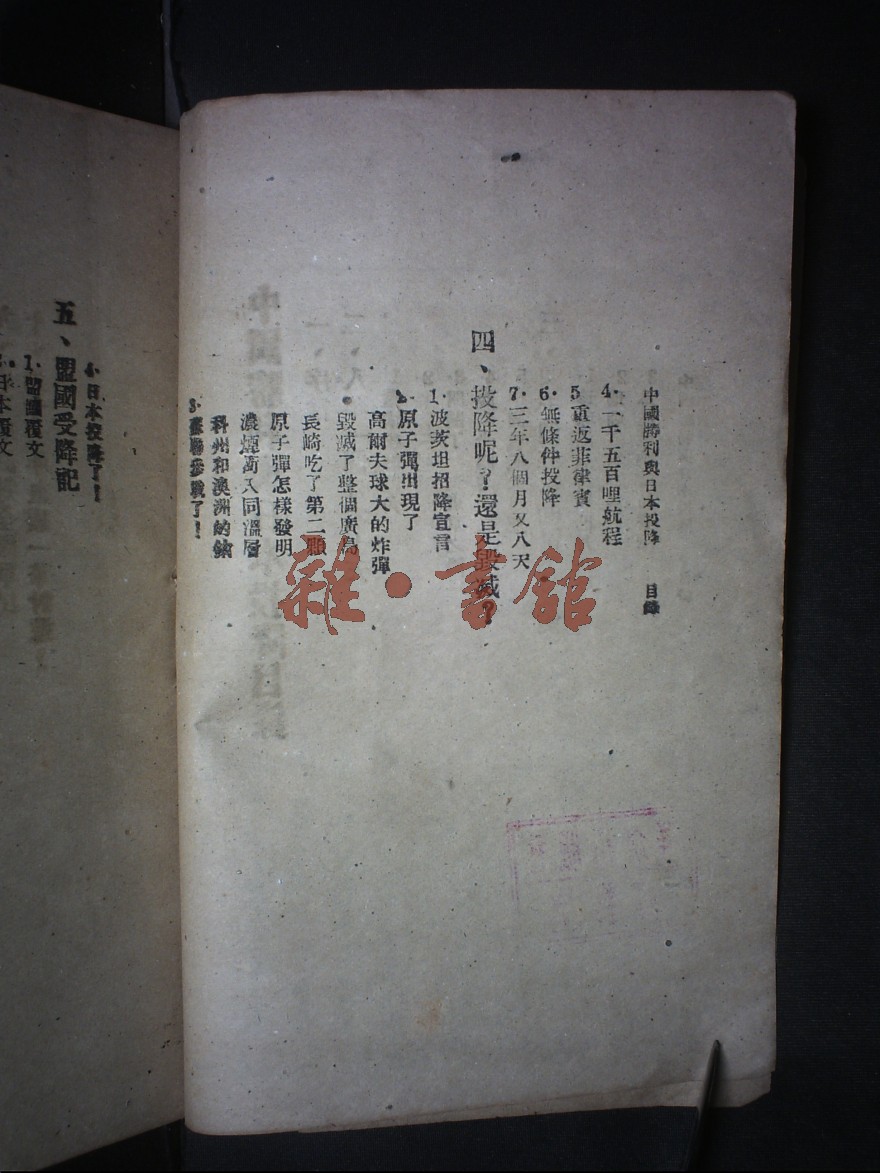 中國勝利與日本投降　目錄
4．一千五百哩航程
5 重返菲律賓
6．無條件投降
7．三年八個月又八天
四、投降呢？還是毀滅？
1．波茨坦招降宣言
2．原子彈出現了
高爾夫球大的炸彈
毀滅了整個廣島
長崎吃了第二顆
原子彈怎樣發明
濃煙衝入同溫層
科州和澳洲的鈾
3．蘇聯參戰了！
4．日本投降了！
五、盟國受降記
1．盟國覆文
日本覆文
雜·書館